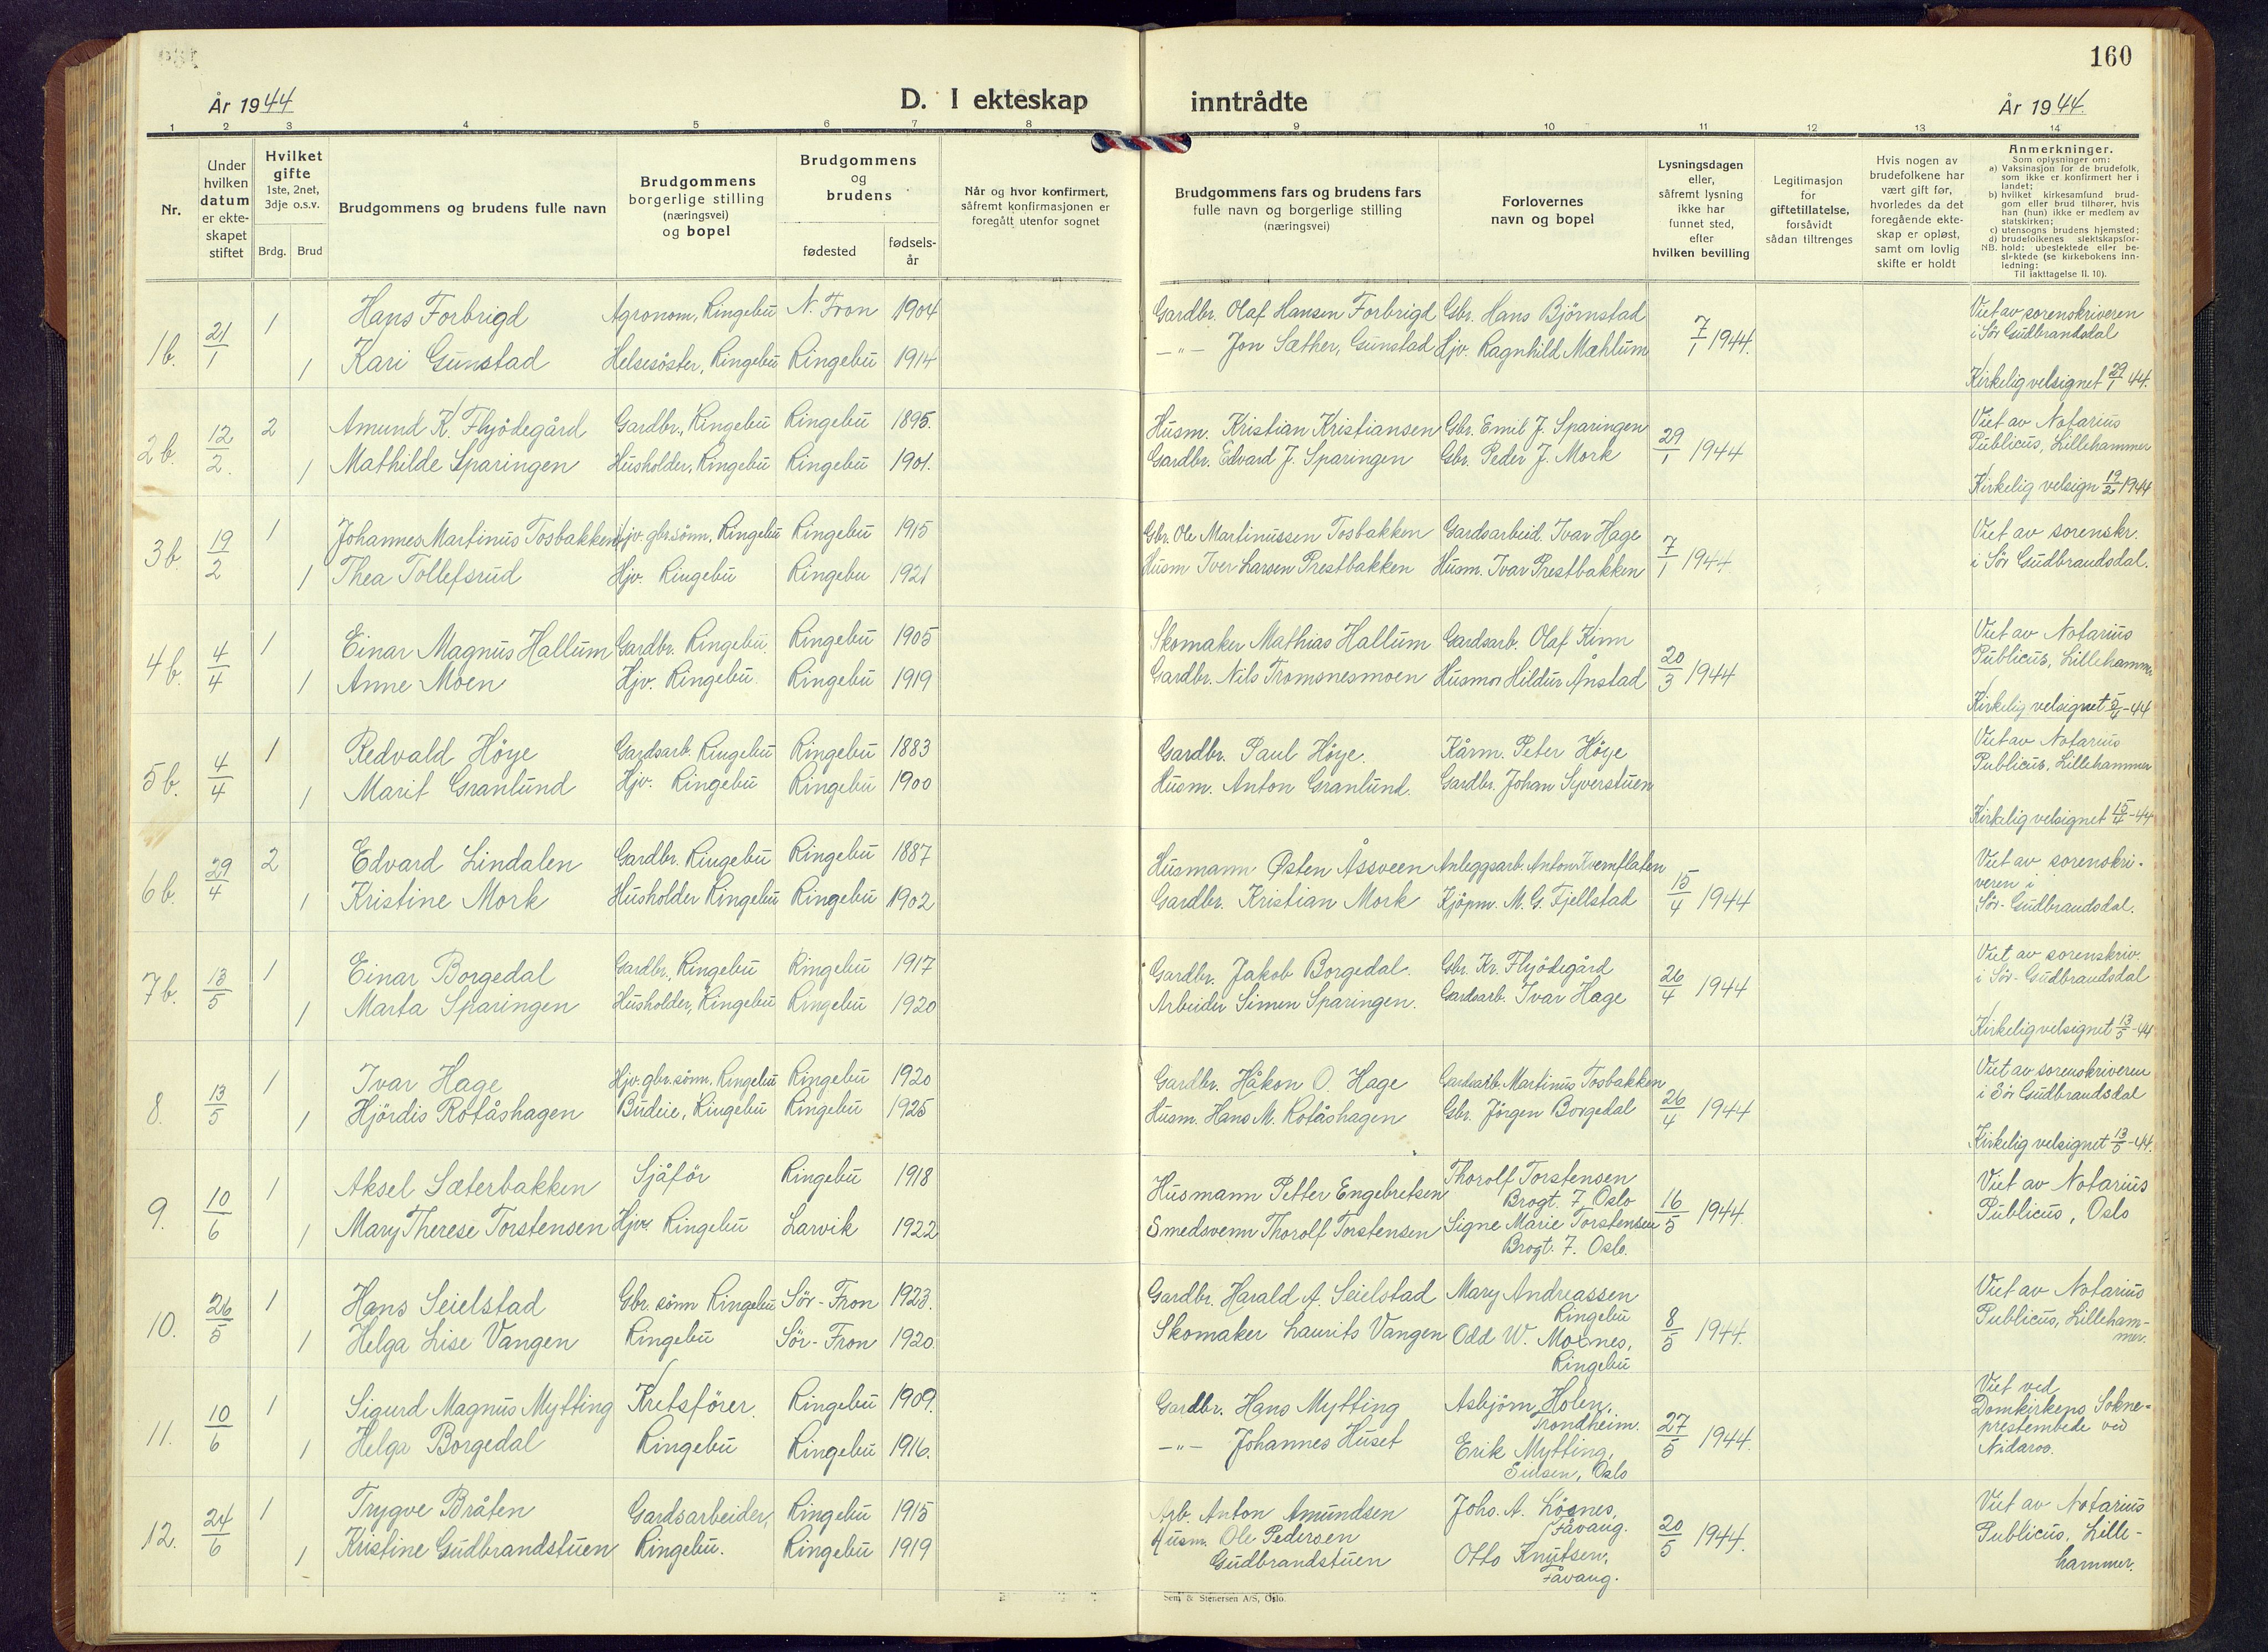 160
År 1944
D. I ekteskap inntrådte
År 1944.
1 2 3 4 5 6 7 8 9 10 11 12 13 14
Nr.
Under
hvilken
datum
er ekte-
skapet
stiftet
Hvilket
gifte
1ste, 2net,
3dje o.s.v.
Brdg. Brud
Brudgommens og brudens fulle navn
Brudgommens
borgerlige stilling
(næringsvei)
og bopel
Brudgommens
og
brudens
fødested
fødsels-
år
Når og hvor konfirmert,
såfremt konfirmasjonen er
foregått utenfor sognet
Brudgommens fars og brudens fars
fulle navn og borgerlige stilling
(næringsvei)
Forlovernes
navn og bopel
Lysningsdagen
eller,
såfremt lysning
ikke har
funnet sted,
efter
hvilken bevilling
Legitimasjon
for
giftetillatelse,
forsåvidt
sådan tiltrenges
Hvis nogen av
brudefolkene har
vært gift før,
hvorledes da det
foregående ekte-
skap er opløst,
samt om lovlig
skifte er holdt
Anmerkninger.
Som oplysninger om:
a) Vaksinasjon for de brudefolk,
som ikke er konfirmert her i
landet;
b) hvilket kirkesamfund brud-
gom eller brud tilhører, hvis
han (hun) ikke er medlem av
statskirken;
c) utensogns brudens hjemsted;
d) brudefolkenes slektskapsfor-
hold: ubeslektede eller be-
slektede (se kirkebokens inn-
ledning:
Til iakttagelse II. 10).
NB.
1b. 21/1 1 Hans Forbrigd Agronom, Ringebu N. Fron 1904 Gardbr. Olaf Hansen Forbrigd Gbr. Hans Bjørnstad 7/1 1944. Viet av sorenskriveren
i Sør Gudbrandsdal
1 Kari Gunstad Helsesöster, Ringebu Ringebu 1914 —"— Jon Sæther, Gunstad Hjv. Ragnhild Mæhlum
Kirkelig velsignet 29/1 44.
2b. 12/2. 2 Amund K. Flyödegård Gardbr., Ringebu Ringebu 1895. Husm. Kristian Kristiansen Gbr. Emil J. Sparingen 29/1 1944 Viet av Notarius
Publicus, Lillehammer
1 Mathilde Sparingen Husholder, Ringebu Ringebu 1901. Gardbr. Edvard J. Sparingen Gbr. Peder J. Mork
Kirkelig velsign 19/2 1944
3b. 19/2 1 Johannes Martinus Tosbakken Hjv. gbr.sönn, Ringebu Ringebu 1915 Gbr. Ole Martinussen Tosbakken Gardsarbeid. Ivar Hage 7/1 1944 Viet av sorenskr.
i Sör Gudbrandsdal.
1 Thea Tollefsrud Hjv. Ringebu Ringebu 1921 Husm Iver Larsen Prestbakken Husm. Ivar Prestbakken
4b. 4/4 1 Einar Magnus Hallum Gardbr. Ringebu. Ringebu 1905 Skomaker Mathias Hallum Gardsarb. Olaf Kinn 20/3 1944 Viet av Notarius
Publicus, Lillehammer
1 Anne Moen Hjv. Ringebu. Ringebu 1919 Gardbr. Nils Tromsnesmoen Husmor Hildur Ånstad
Kirkelig velsignet 5/4-44
5b. 4/4 1 Redvald Höye Gardsarb. Ringebu Ringebu 1883 Gardbr. Paul Höye. Kårm. Peter Höye Viet av Notarius
Publicus, Lillehammer
1 Marit Granlund Hjv. Ringebu Ringebu 1900 Husm. Anton Granlund. Gardbr. Johan Syverstuen
Kirkelig velsignet 15/4-44
6b. 29/4 2 Edvard Lindalen Gardbr. Ringebu Ringebu 1887 Husmann Østen Åssveen Anleggsarb. Anton Kvernflaten 15/4 1944 Viet av sorenskri-
veren i
Sör-Gudbrandsdal.
1 Kristine Mork Husholder Ringebu Ringebu 1902 Gardbr. Kristian Mork Kjöpm. M. G. Fjellstad
7b. 13/5 1 Einar Borgedal Gardbr., Ringebu Ringebu 1917 Gardbr. Jakob Borgedal. Gbr. Kr. Flyödegård 26/4 1944 Viet av sorenskriv.
i Sör-Gudbrandsdal
1 Marta Sparingen Husholder, Ringebu Ringebu 1920 Arbeider Simen Sparingen. Gardsarb. Ivar Hage
Kirkelig velsignet 13/5-44
8. 13/5 1 Ivar Hage Hjv. gbr.sönn, Ringebu Ringebu 1920 Gardbr. Håkon O. Hage Gardsarb. Martinus Tosbakken 26/4 1944 Viet av sorenskriveren
i Sör Gudbrandsdal
1 Hjördis Rotåshagen Budeie, Ringebu Ringebu 1925 Husm. Hans M. Rotåshagen Gbr. Jörgen Borgedal
Kirkelig velsignet 13/5-44.
9. 10/6 1 Aksel Sæterbakken Sjåför Ringebu 1918 Husmann Petter Engebretsen Thorolf Torstensen
Brogt. 7 Oslo 16/5 1944. Viet av Notarius
Publicus, Oslo
1 Mary Therese Torstensen Hjv. Ringebu Larvik 1922 Smedsvenn Thorolf Torstensen Signe Marie Torstensen
Brogt. 7. Oslo.
10. 26/5 1 Hans Seielstad Gbr. sönn Ringebu Sör-Fron 1923. Gardbr. Harald A. Seielstad Mary Andreassen
Ringebu 8/5 1944. Viet av Notarius
Publicus, Lilleham-
mer.
1 Helga Lise Vangen Ringebu Sör-Fron 1920. Skomaker Laurits Vangen Odd W. Moxnes,
Ringebu
11. 10/6 1 Sigurd Magnus Mytting Kretsförer. Ringebu 1909. Gardbr. Hans Mytting Asbjörn Holen,
Trondheim. 27/5 1944. Viet ved
Domkirkens Sokne-
prestembede ved
Nidaros.
1 Helga Borgedal Ringebu Ringebu 1916. —"— Johannes Huset Erik Mytting,
Sinsen, Oslo
12. 24/6 1 Trygve Bråten Gardsarbeider, Ringebu 1915 Arb. Anton Amundsen Johs. A. Lösnes,
Fåvang. 20/5 1944. Viet av Notarius
Publicus, Lille-
hammer.
1 Kristine Gudbrandstuen Ringebu. Ringebu 1919 Husm. Ole Pedersen
Gudbrandstuen Otto Knutsen,
Fåvang.
Sem & Stenersen A/S, Oslo.